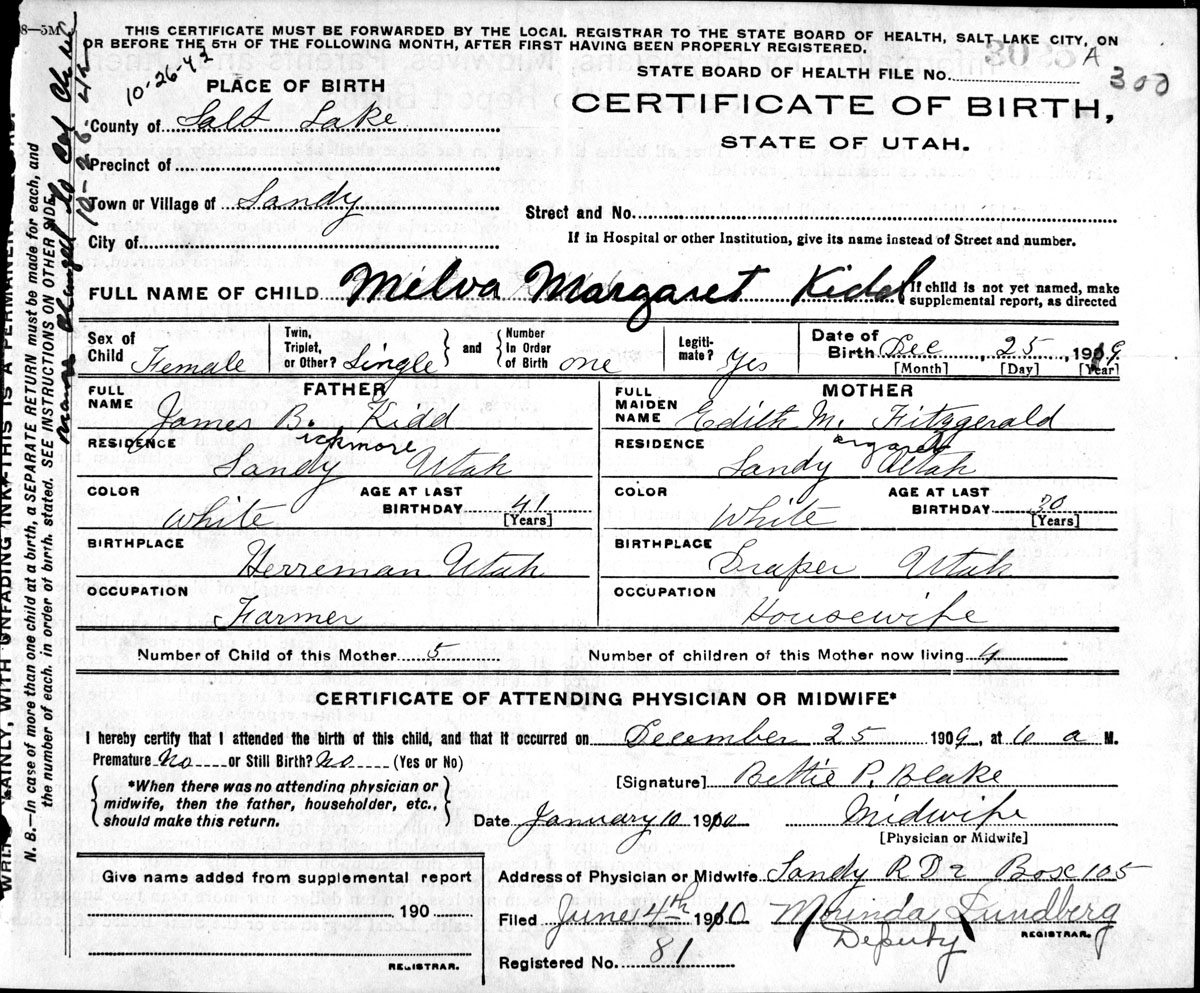 8—5M
THIS CERTIFICATE MUST BE FORWARDED BY THE LOCAL REGISTRAR TO THE STATE BOARD OF HEALTH, SALT LAKE CITY, ON
OR BEFORE THE 5TH OF THE FOLLOWING MONTH, AFTER FIRST HAVING BEEN PROPERLY REGISTERED.
10-26-43
STATE BOARD OF HEALTH FILE No.
A
300
PLACE OF BIRTH
CERTIFICATE OF BIRTH,
STATE OF UTAH.
County of Salt Lake
Precinct of
Town or Village of Sandy
Street and No.
City of
If in Hospital or other Institution, give its name instead of Street and number.
FULL NAME OF CHILD Milva Margaret Kidd
If child is not yet named, make
supplemental report, as directed
Sex of Child Female
Twin, Triplet, or Other? Single
and
Number In Order of Birth one
Legiti- mate? Yes
Date of Birth Dec, 25, 1909
[Month] [Day] [Year]
FATHER
FULL NAME James B. Kidd
ickmore
RESIDENCE Sandy Utah
COLOR White
AGE AT LAST BIRTHDAY 41
[Years]
BIRTHPLACE Herreman Utah
OCCUPATION Farmer
MOTHER
FULL MAIDEN NAME Edith M. Fitzgerald
argaret
RESIDENCE Sandy Utah
COLOR White
AGE AT LAST BIRTHDAY 30
[Years]
BIRTHPLACE Draper Utah
OCCUPATION Housewife
Number of Child of this Mother 5
Number of children of this Mother now living 4
CERTIFICATE OF ATTENDING PHYSICIAN OR MIDWIFE*
I hereby certify that I attended the birth of this child, and that it occurred on December 25 1909, at 6 a M.
Premature No or Still Birth? No (Yes or No)
*When there was no attending physician or
midwife, then the father, householder, etc.,
should make this return.
[Signature] Bettie P. Blake
Date January 10 1910
Midwife
[Physician or Midwife]
Give name added from supplemental report
190
REGISTRAR.
Address of Physician or Midwife Sandy R D 2 Box 105
Filed 4th 1910 Morinda Lundberg
REGISTRAR.
Deputy
Registered No. 81
N. B.—In case of more than one child at a birth, a SEPARATE RETURN must be made for each, and
the number of each, in order of birth, stated. SEE INSTRUCTIONS ON OTHER SIDE.
PLAINLY, WITH UNFADING INK—THIS IS A PERMANENT